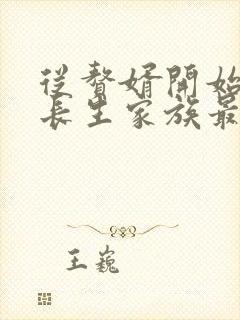 從贅婿開始
長生家族最
王巍